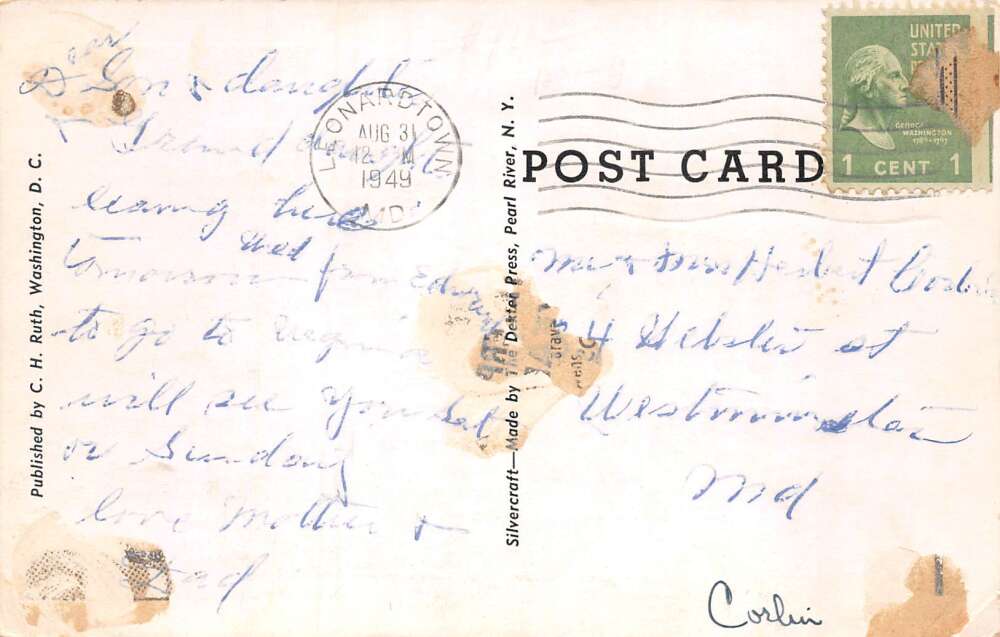 Dear
Son & daught
&
leaving here
Wed
tomorrow from Edwards
to go to Virginia
will see you Sat
or Sunday
love Mother &
Dad
LEONARDTOWN
AUG 31
12 M
1949
MD.
UNITED
STAT
GEORGE
WASHINGTON
1 CENT 1
POST CARD
Mr & Mrs Herbert
4 Webster st
Westminster
Md
Corbin
Published by C. H. Ruth, Washington, D. C.
Silvercraft—Made by The Dexter Press, Pearl River, N. Y.